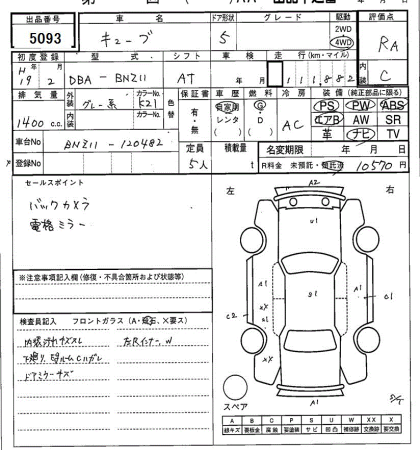 出品番号 車名 ドア形状 グレード 駆動 評価点
5093 キューブ 5 2WD 4WD RA
初度登録 型式 シフト 車検 走行(km・マイル) 内装
H19 2 DBA-BNZ11 AT 年 月 111,882 C
排気量 外装 カラーNo. 色替 保証書 車歴 燃料 冷房 装備(純正部品に限る)
1400 c.c. グレー系 K21 有・無 自家用 レンタ G D AC PS PW ABS
カラーNo. エアB AW SR
革 ナビ TV
車台No BNZ11-120482 定員 積載量 名変期限 年 月 日
登録No 5人 t R料金 未預託・預託済 10570円
セールスポイント
バックカメラ
電格ミラー
左 右
A2
U1
A1 S1 A1
C2 C1
XX
S1
XX
A1
スペア
※注意事項記入欄(修復・不具合箇所および状態等)
検査員記入 フロントガラス(A・飛石、X要ス)
内装汚れキズスレ 左Rインナー.W
ドアミラーキズ
A B C P S U W XX X
線キズ 要板金 腐蝕 要塗装 サビ 凹凸 補修跡 交換跡 要交換